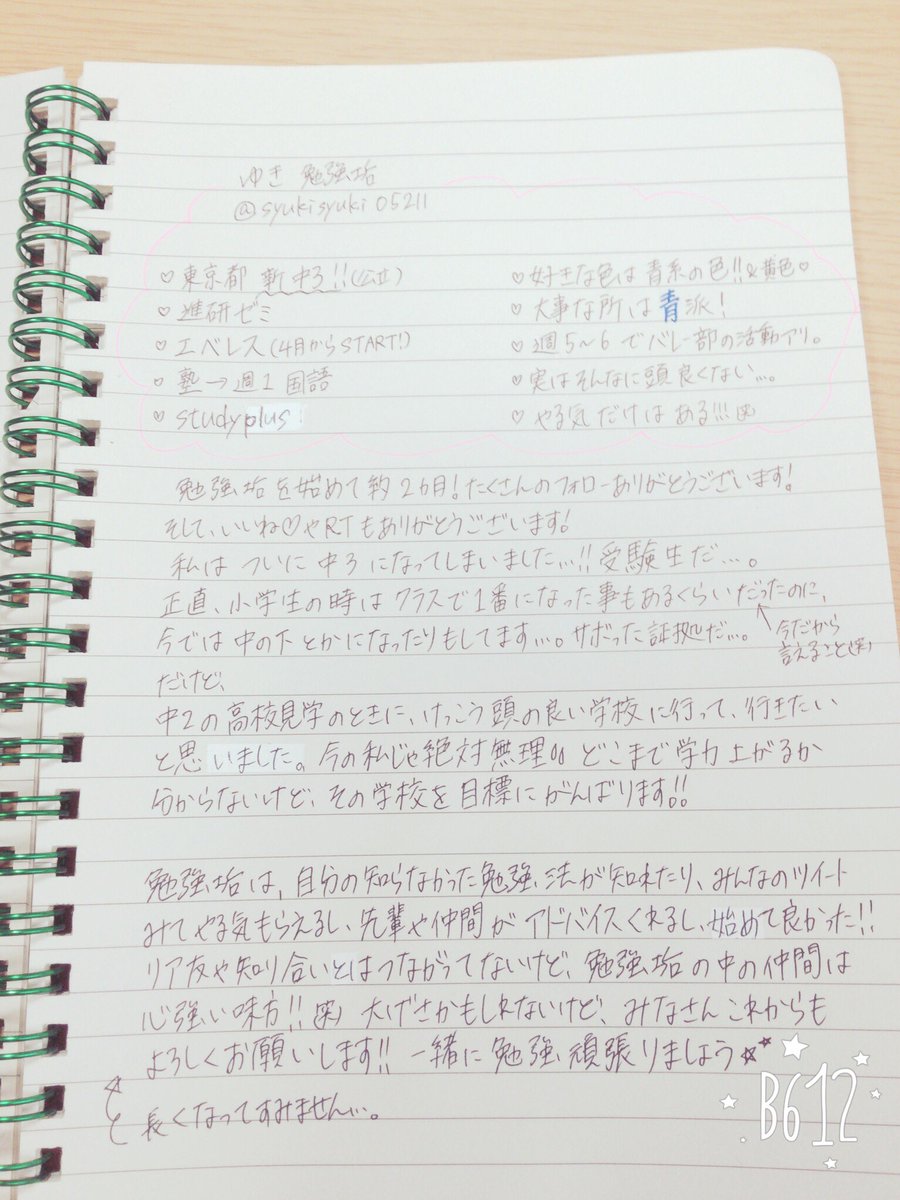 ゆき 勉強垢
@syukisyuki05211
♡東京都 新中3!!(公立)
♡進研ゼミ
♡エベレス(4月からSTART!)
♡塾→週1 国語
♡studyplus
♡好きな色は青系の色!!&黄色♡
♡大事な所は青派!
♡週5~6でバレー部の活動アリ。
♡実はそんなに頭良くない…。
♡やる気だけはある!!!(笑)
勉強垢を始めて約2カ月!たくさんのフォローありがとうございます!
そして、いいね♡やRTもありがとうございます!
私はついに中3になってしまいました…!!受験生だ…。
正直、小学生の時はクラスで1番になった事もあるくらいだったのに、
今では中の下とかになったりもしてます…。サボった証拠だ…。
今だから
言えること(笑)
だけど、
中2の高校見学のときに、けっこう頭の良い学校に行って、行きたい
と思いました。今の私じゃ絶対無理 どこまで学力上がるか
分からないけど、その学校を目標にがんばります!!
勉強垢は、自分の知らなかった勉強法が知れたり、みんなのツイート
みてやる気もらえるし、先輩や仲間がアドバイスくれるし、始めて良かった!!
リア友や知り合いとはつながってないけど、勉強垢の中の仲間は
心強い味方!!(笑) 大げさかもしれないけど、みなさんこれからも
よろしくお願いします!! 一緒に勉強頑張りましょう☆★
と 長くなってすみません…。
B612